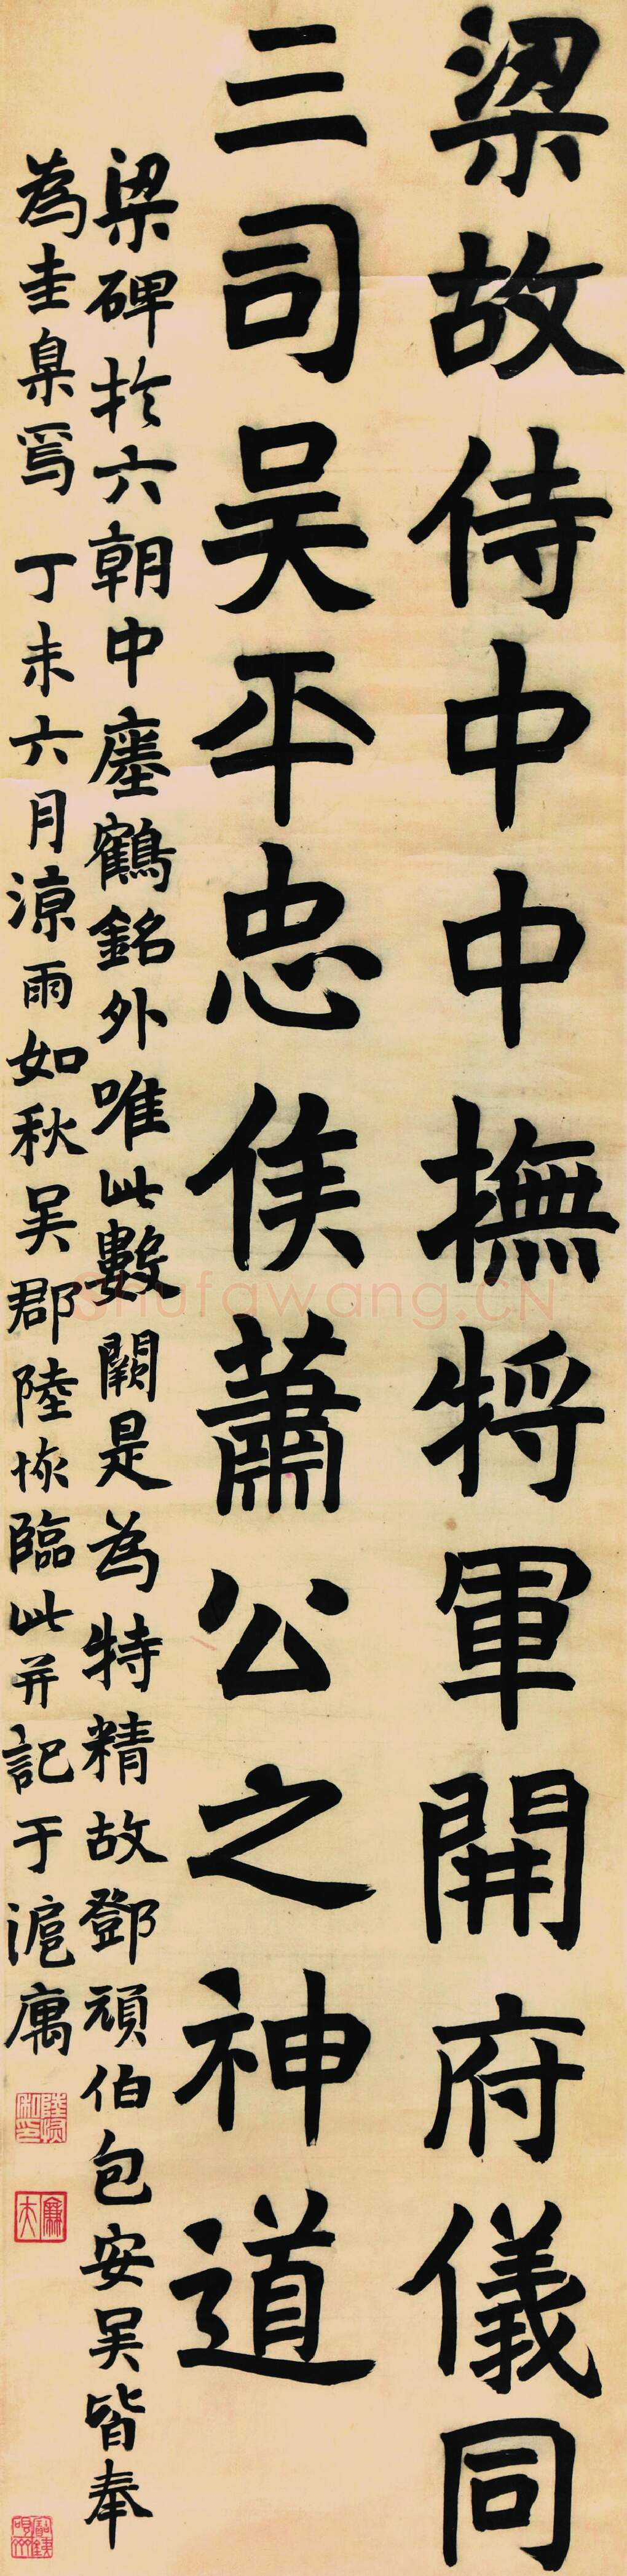 梁故侍中中撫將軍開府儀同
三司吴平忠侯蕭公之神道
梁碑於六朝中瘞鶴銘外唯此數闕是為特精故鄧頑伯包安吴皆奉
為圭臬焉 丁未六月涼雨如秋吴郡陸恢臨此并記于滬寓
陸恢私印
廉夫
Shufawang.CN